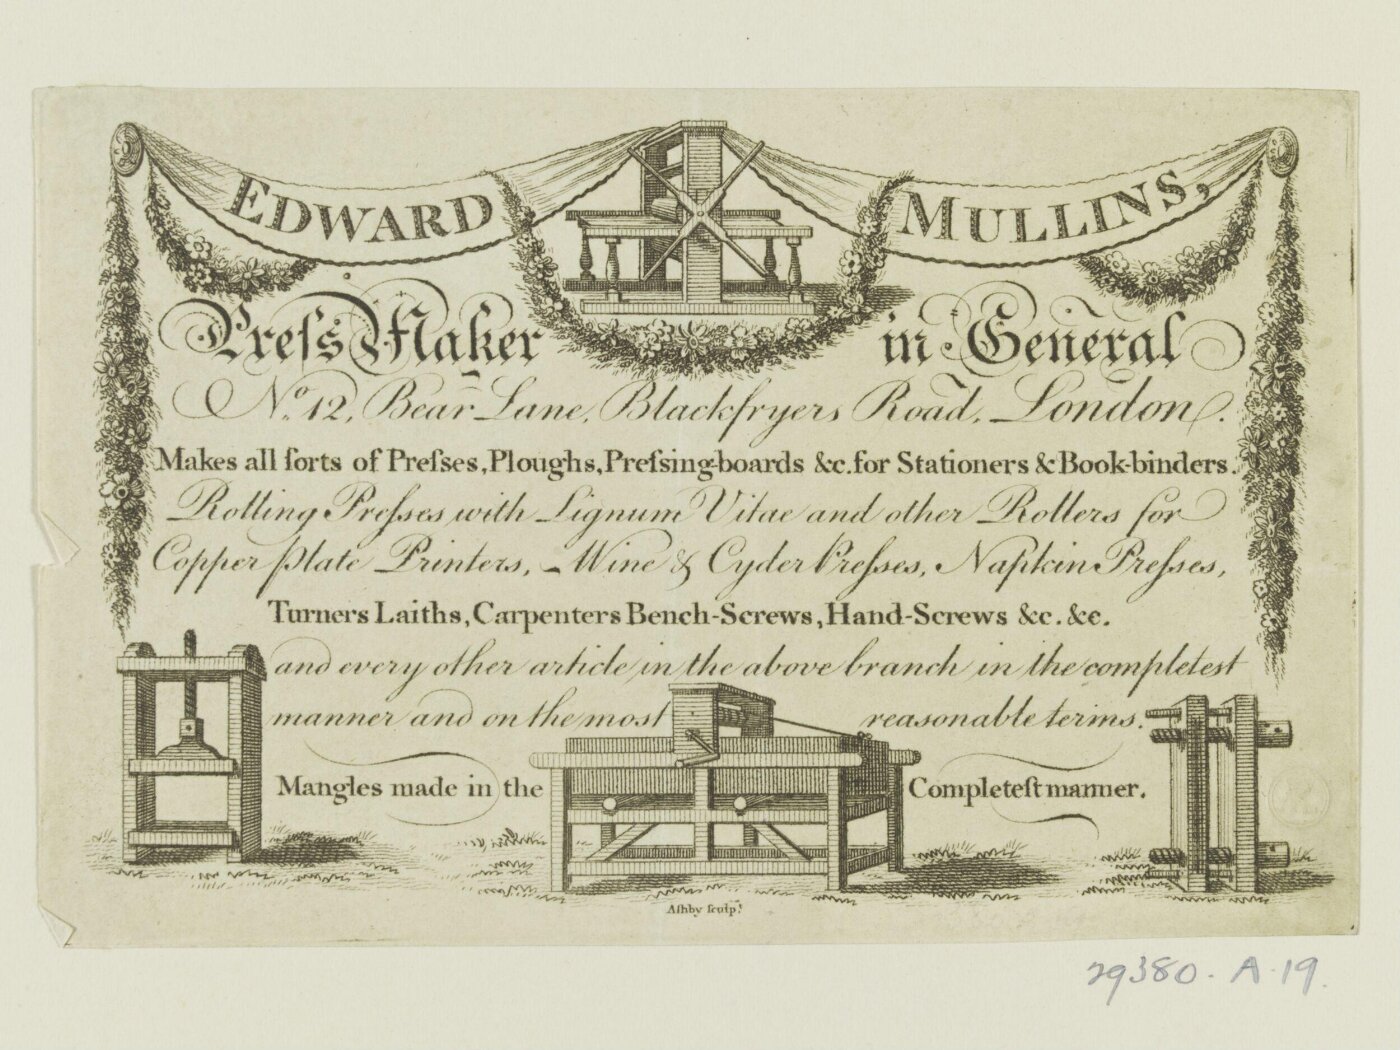 EDWARD MULLINS,
Preſs Maker in General
No. 12, Bear Lane, Blackfryers Road, London.
Makes all ſorts of Preſses, Ploughs, Preſsing-boards &c. for Stationers & Book-binders.
Rolling Preſses with Lignum Vitae and other Rollers for
Copper plate Printers, Wine & Cyder Preſses, Napkin Preſses,
Turners Laiths, Carpenters Bench-Screws, Hand-Screws &c. &c.
and every other article in the above branch in the completest
manner and on the most reasonable terms.
Mangles made in the Completeſt manner.
Aſhby ſculpt.
29380. A. 19.